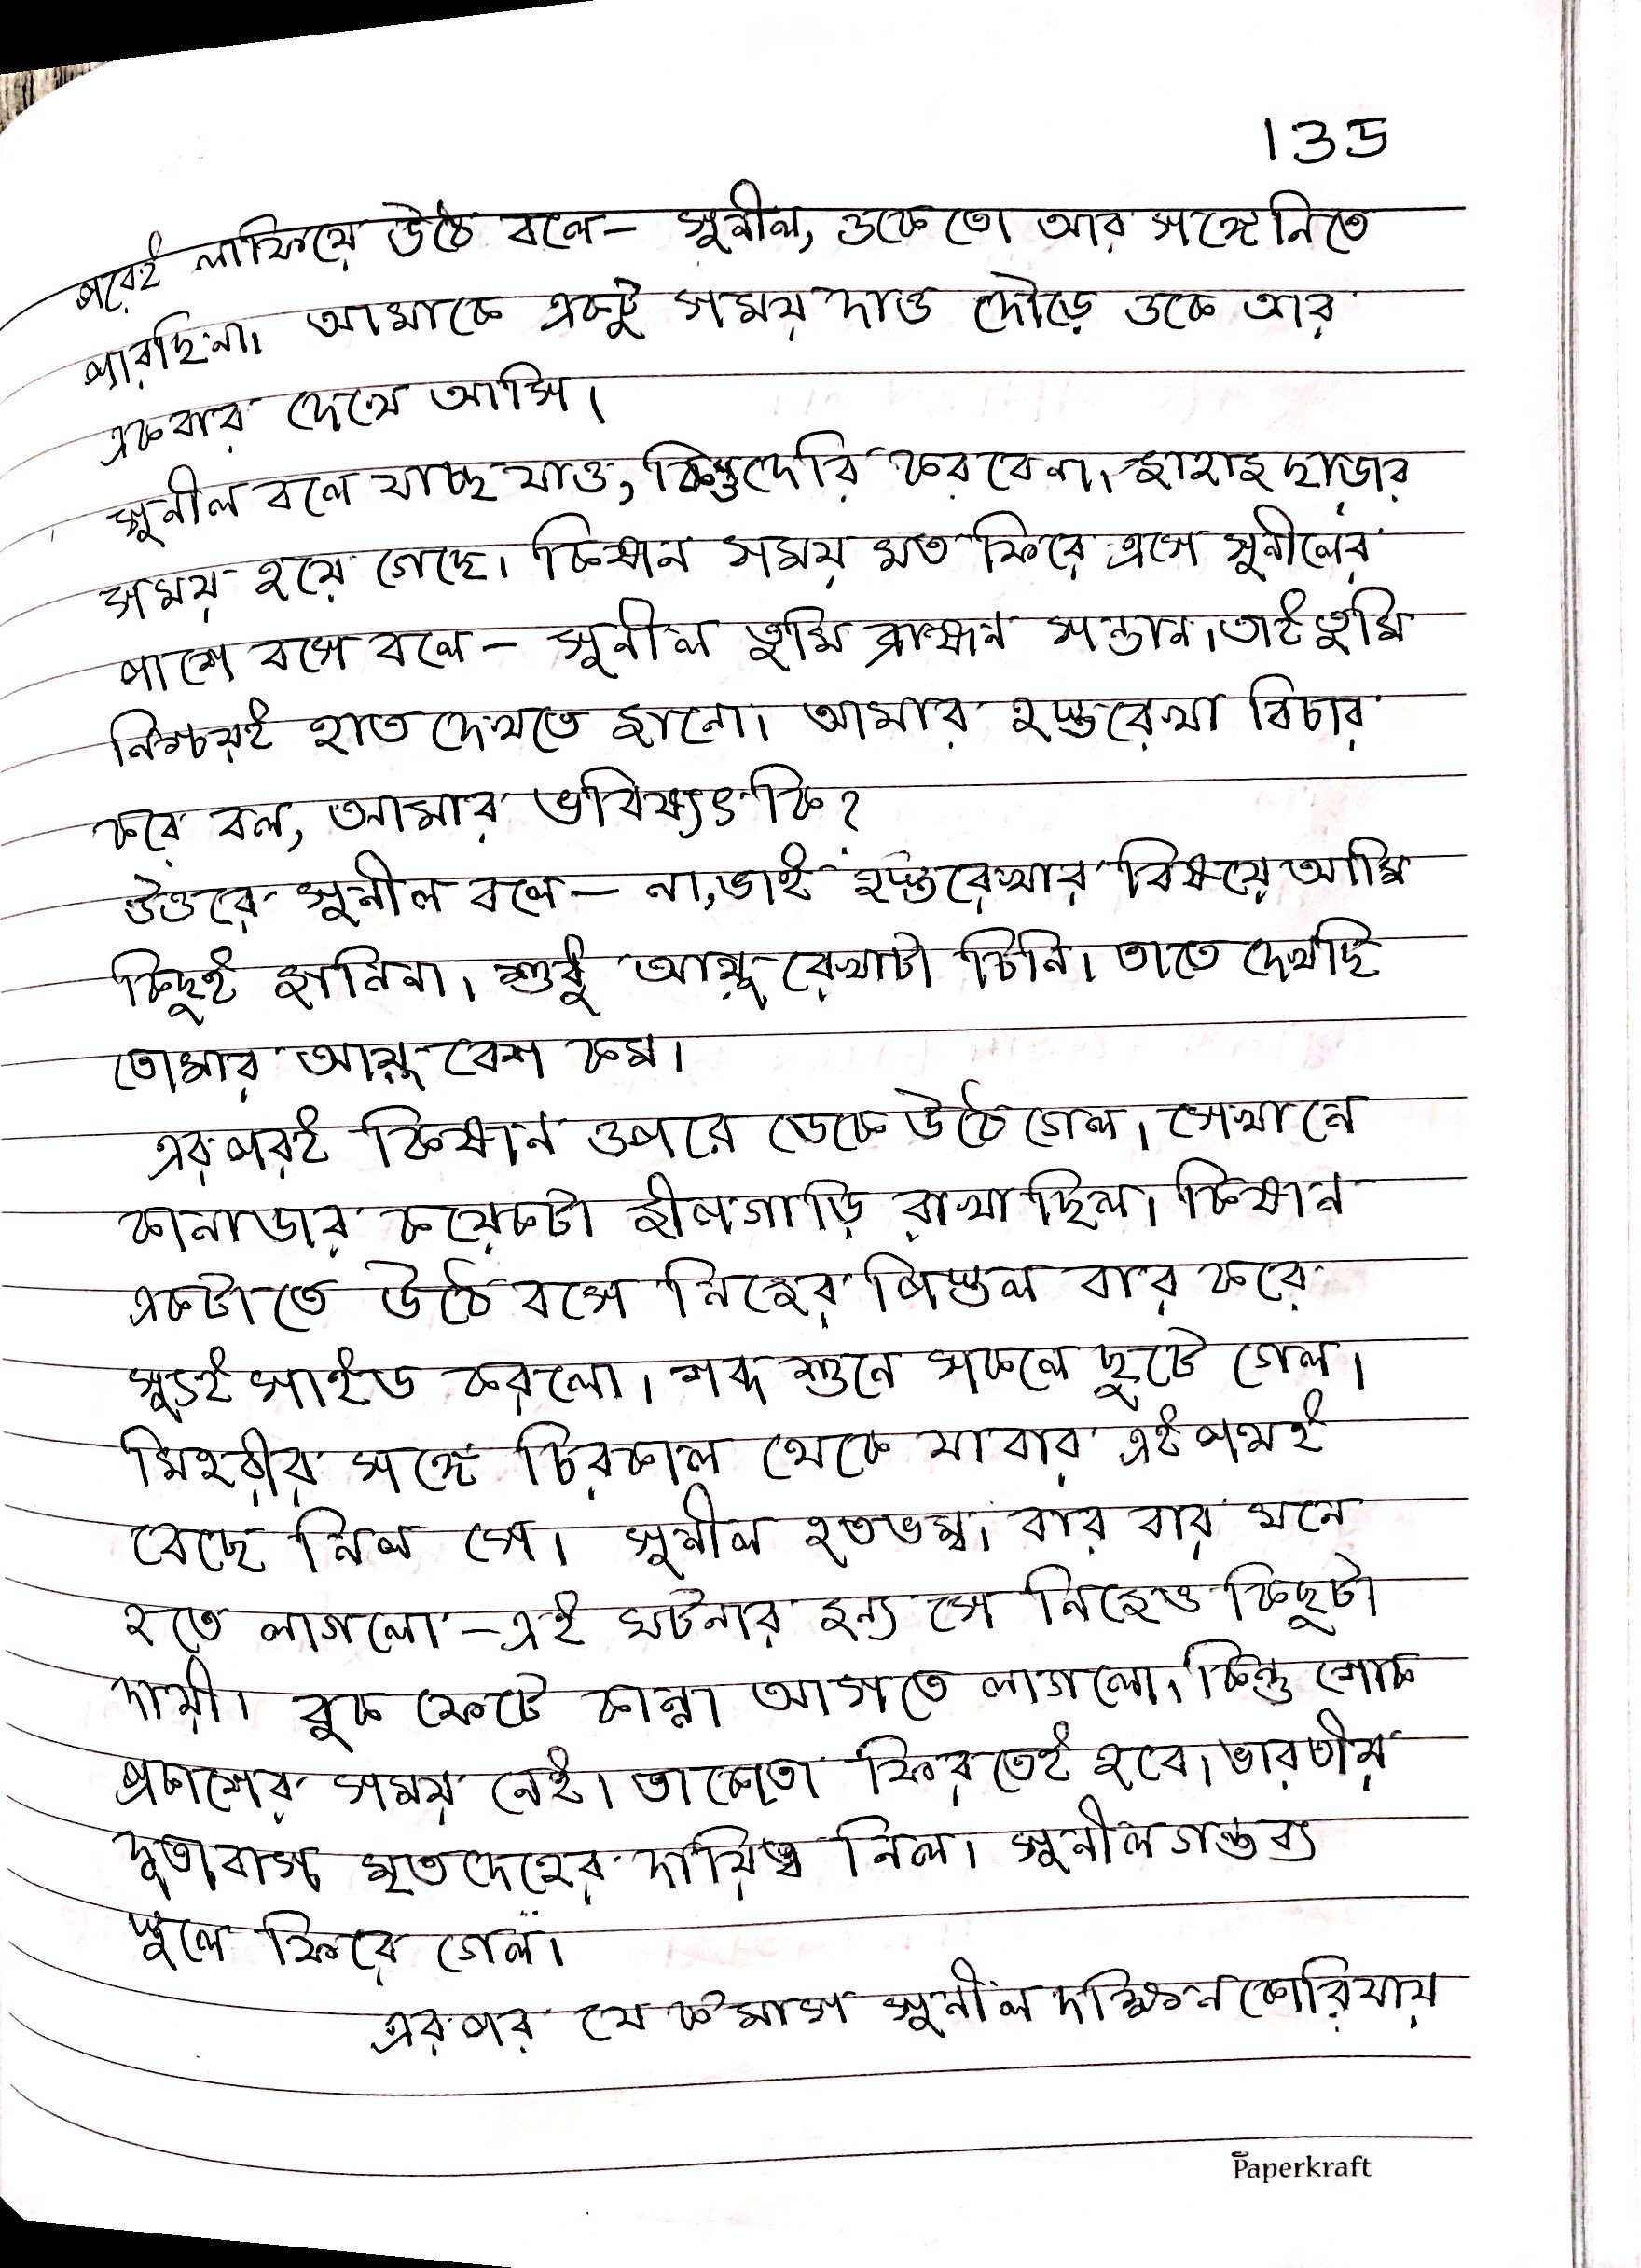 135
পরেই লাফিয়ে উঠে বলে – সুনীল, ওকে তো আর সঙ্গে নিতে
পারছি না। আমাকে একটু সময় দাও দৌড়ে ওকে আর
একবার দেখে আসি।
সুনীল বলে যাচ্ছ যাও, কিন্তু দেরি করবে না। জাহাজ ছাড়ার
সময় হয়ে গেছে। কিষান সময় মত ফিরে এসে সুনীলের
পাশে বসে বলে – সুনীল তুমি ব্রাহ্মন সন্তান। তাই তুমি
নিশ্চয়ই হাত দেখতে জানো। আমার হস্তরেখা বিচার
করে বল, আমার ভবিষ্যৎ কি?
উত্তরে সুনীল বলে – না, ভাই হস্তরেখার বিষয়ে আমি
কিছুই জানিনা। শুধু আয়ু রেখাটা চিনি। তাতে দেখছি
তোমার আয়ু বেশ কম।
এর পরই কিষান ওপরে ডেকে উঠে গেল। সেখানে
কানাডার কয়েকটা জীপগাড়ি রাখা ছিল। কিষান
একটাতে উঠে বসে নিজের পিস্তল বার করে
সুইসাইড করলো। শব্দ শুনে সকলে ছুটে গেল।
মিহরীর সঙ্গে চিরকাল থেকে যাবার এই পথই
বেছে নিল সে। সুনীল হতভম্ব। বার বার মনে
হতে লাগলো – এই ঘটনার জন্য সে নিজেও কিছুটা
দায়ী। বুক ফেটে কান্না আসতে লাগলো। কিন্তু শোক
প্রকাশের সময় নেই। তাকেতো ফিরতেই হবে। ভারতীয়
দূতাবাস মৃতদেহের দায়িত্ব নিল। সুনীল গন্তব্য
স্থলে ফিরে গেল।
এর পর যে ক'মাস সুনীল দক্ষিন কোরিয়ায়
Paperkraft